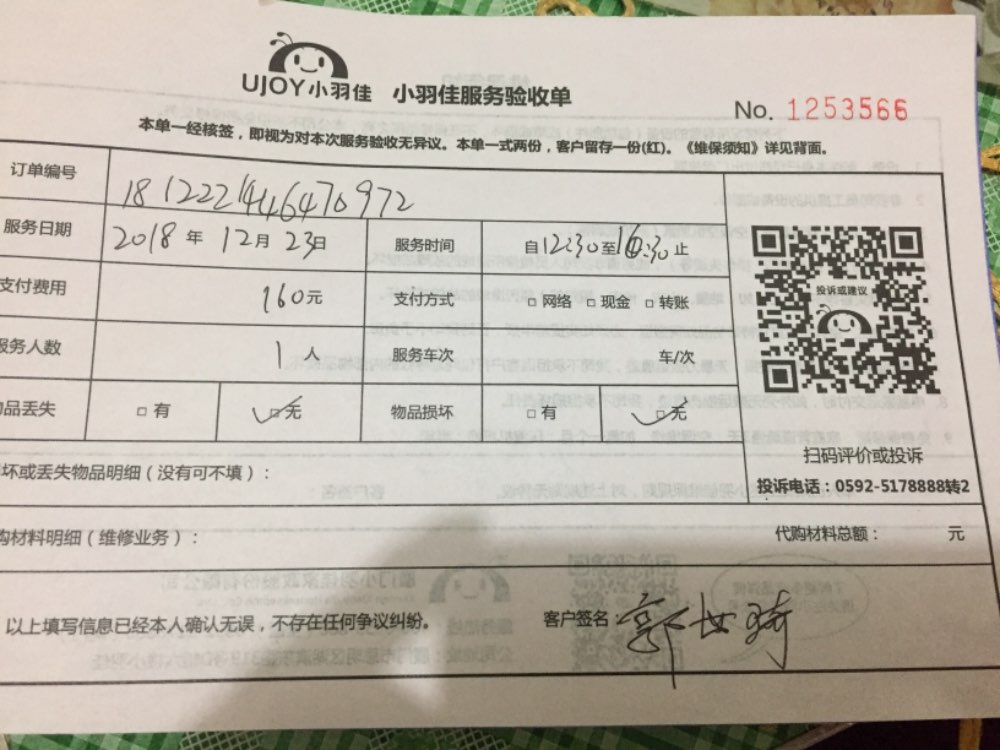 UJOY小羽佳 小羽佳服务验收单
No. 1253566
本单一经核签，即视为对本次服务验收无异议。本单一式两份，客户留存一份(红)。《维保须知》详见背面。
订单编号 181222144646470972
服务日期 2018 年 12 月 23 日 服务时间 自 12:30 至 14:30 止
支付费用 160 元 支付方式 □ 网络 □ 现金 □ 转账
服务人数 1 人 服务车次 车/次
品丢失 □ 有 □ 无 物品损坏 □ 有 □ 无
投诉或建议
扫码评价或投诉
投诉电话：0592-5178888转2
坏或丢失物品明细（没有可不填）：
购材料明细（维修业务）： 代购材料总额： 元
以上填写信息已经本人确认无误，不存在任何争议纠纷。 客户签名：